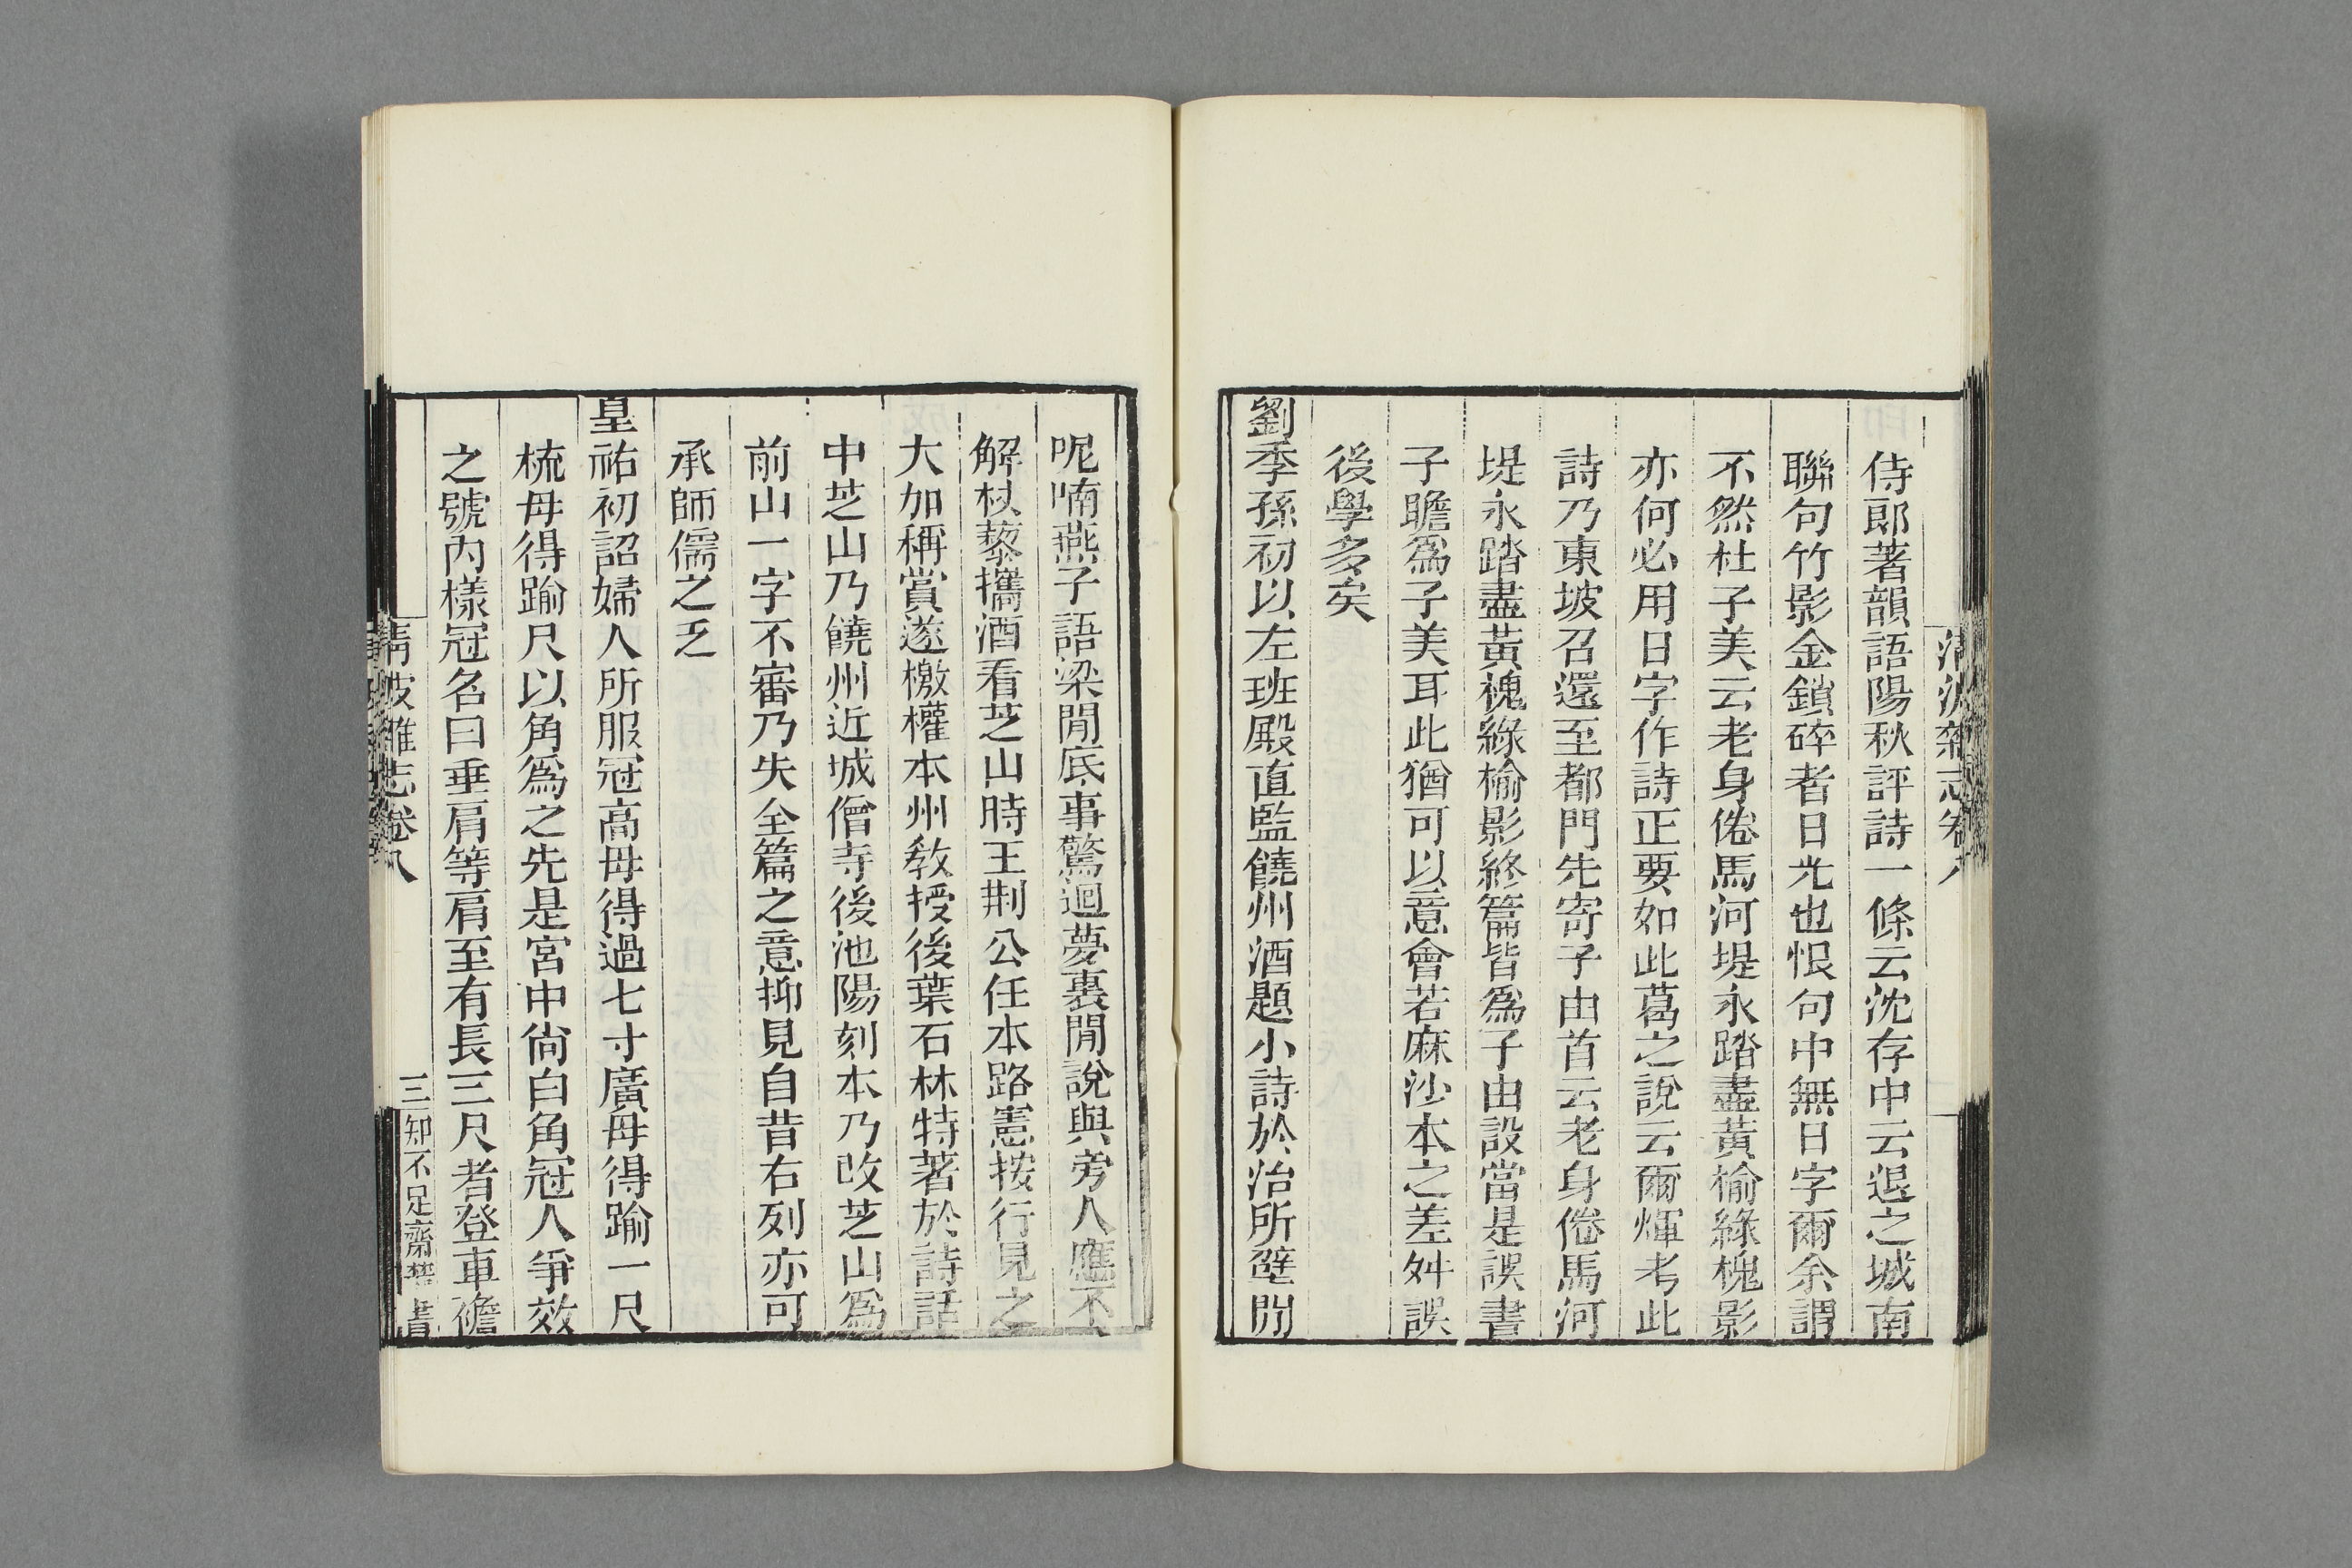 侍郎著韻語陽秋評詩一條云沈存中云退之城南
聯句竹影金鎖碎者日光也恨句中無日字爾余謂
不然杜子美云老身倦馬河堤永踏盡黃榆綠槐影
亦何必用日字作詩正要如此葛之說云爾煇考此
詩乃東坡召還至都門先寄子由首云老身倦馬河
堤永踏盡黃槐綠榆影終篇皆爲子由設當是誤書
子瞻爲子美耳此猶可以意會若麻沙本之差舛誤
後學多矣
劉季孫初以左班殿直監饒州酒題小詩於治所壁閒
呢喃燕子語梁閒底事驚迴夢裏閒說與旁人應不
解杖藜攜酒看芝山時王荆公任本路憲按行見之
大加稱賞遂檄權本州敎授後葉石林特著於詩話
中芝山乃饒州近城僧寺後池陽刻本乃改芝山爲
前山一字不審乃失全篇之意抑見自昔右列亦可
承師儒之乏
皇祐初詔婦人所服冠高毋得過七寸廣毋得踰一尺
梳毋得踰尺以角爲之先是宮中尙白角冠人爭效
之號內樣冠名曰垂肩等肩至有長三尺者登車襜
清波雜志卷八
三
知不足齋叢書